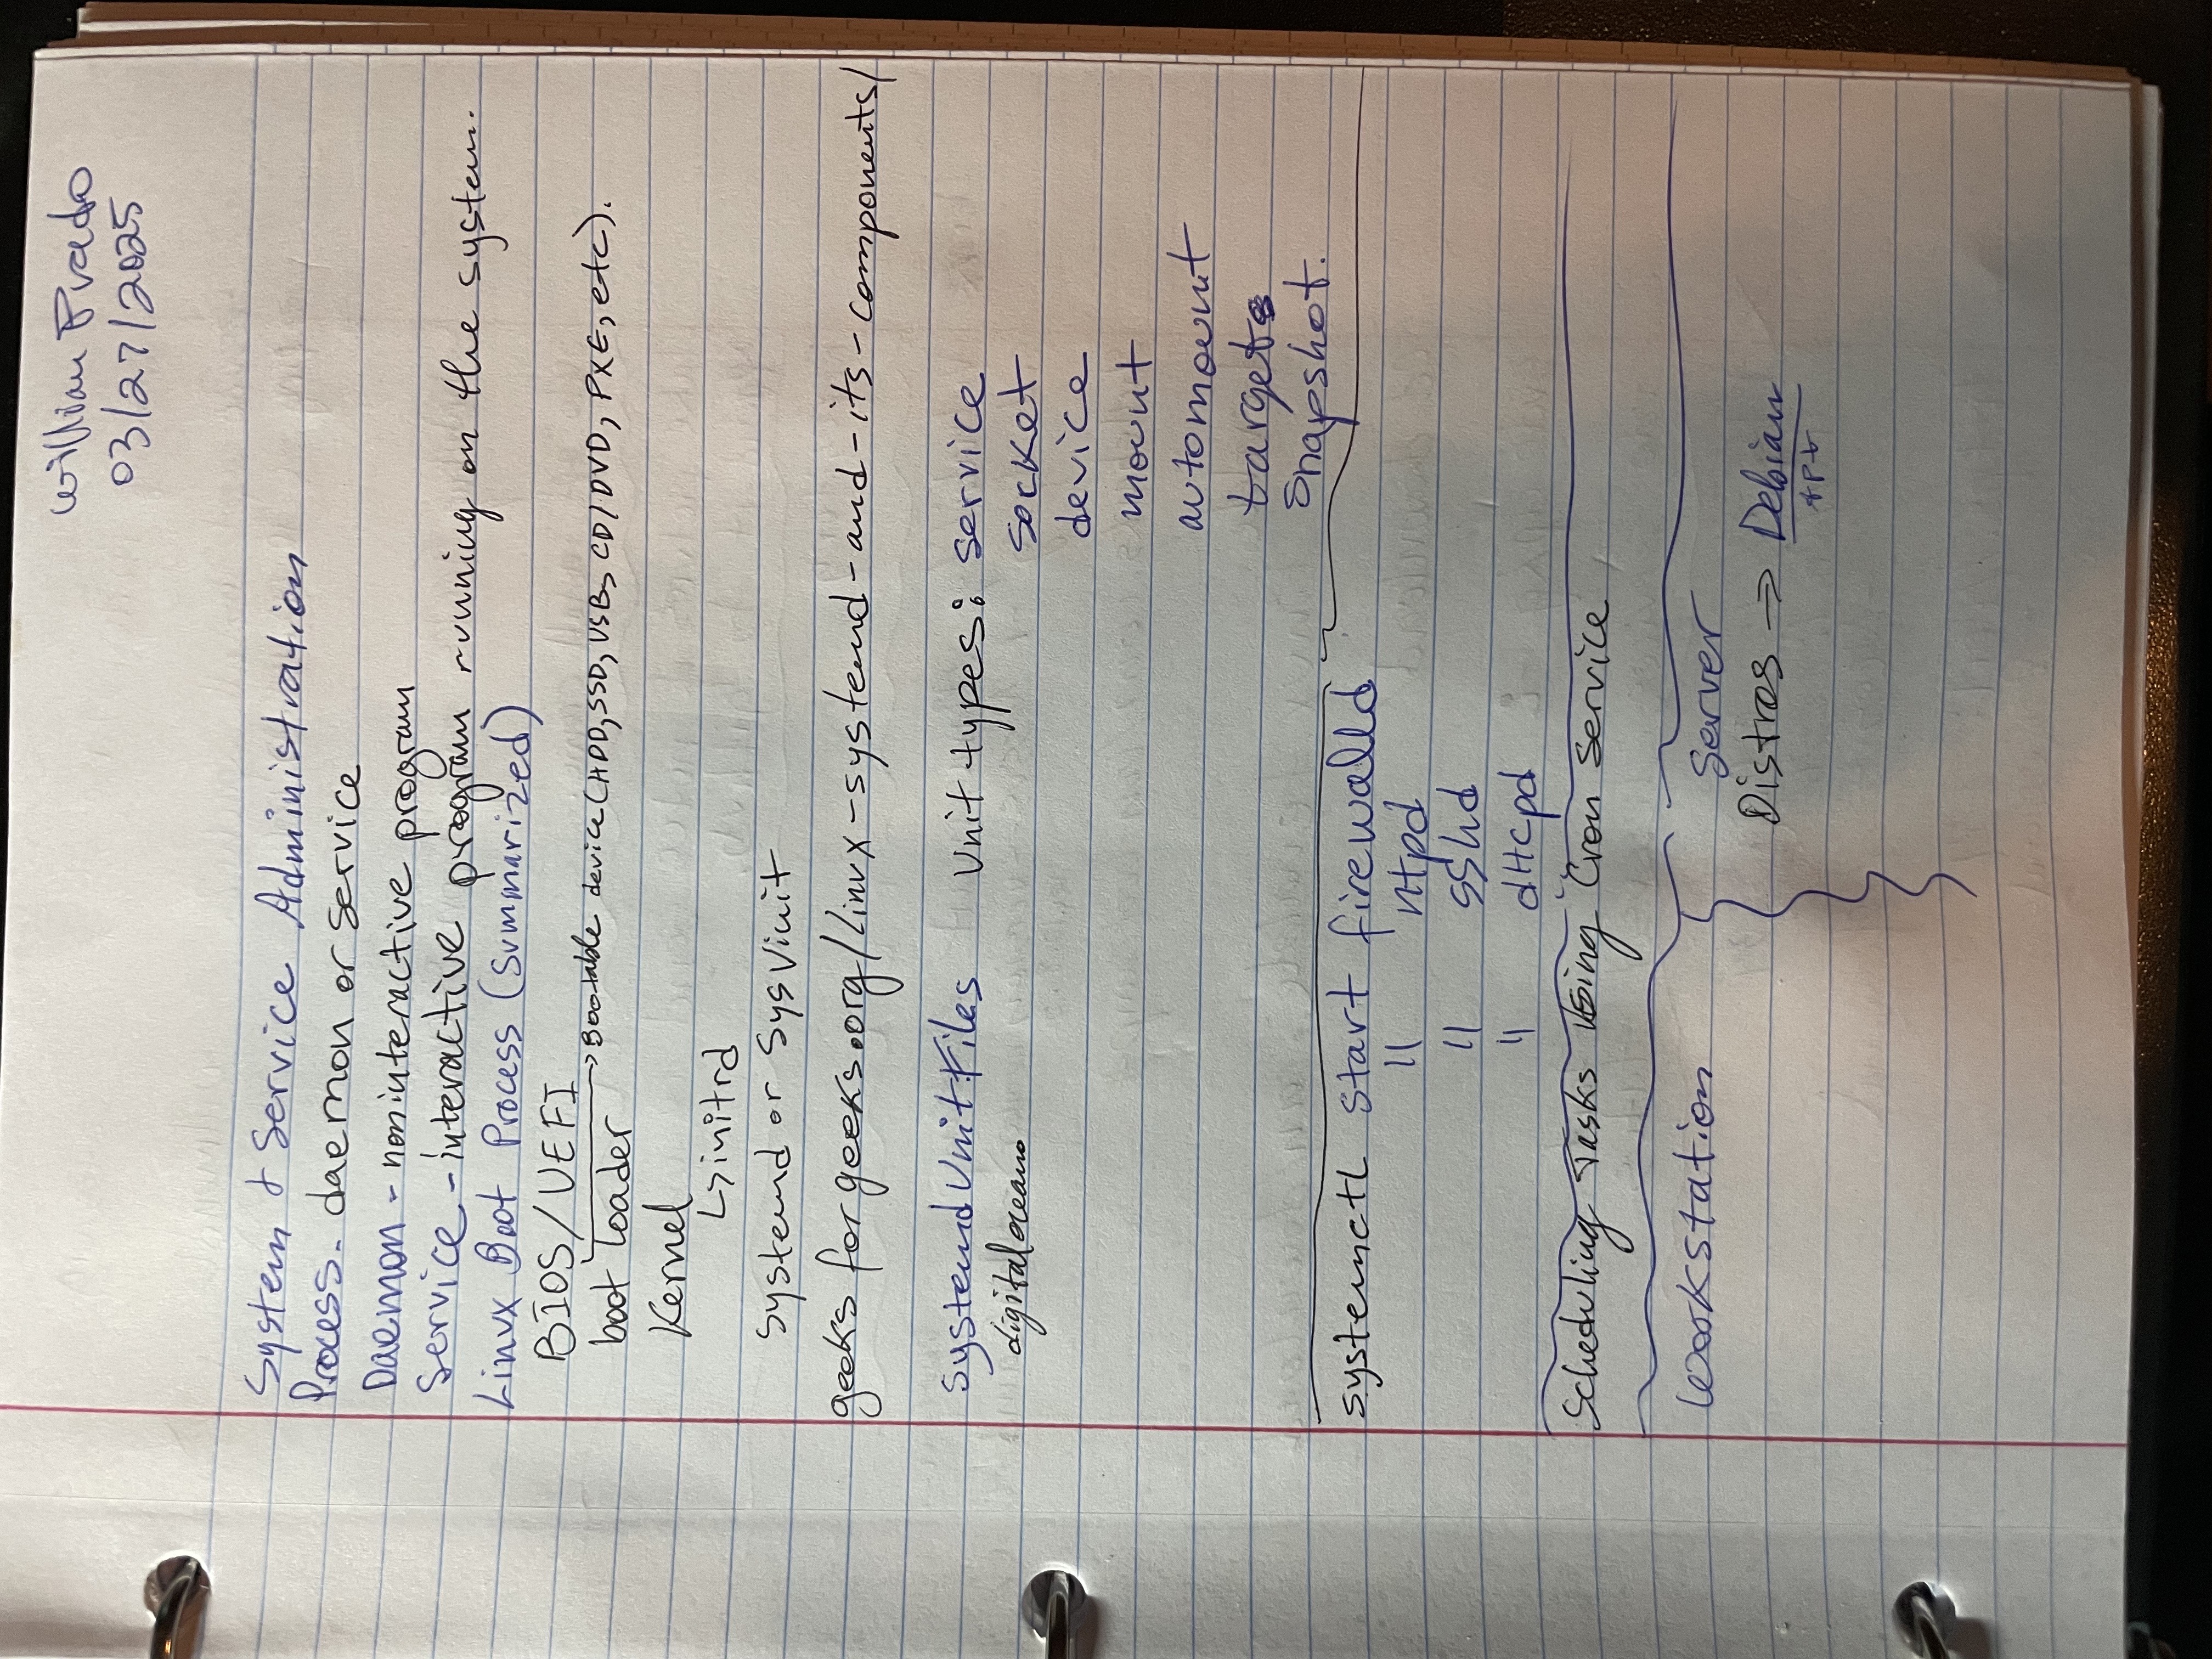 Willian Prado
03/27/2025
System & Service Administration
Process - daemon or service
Daemon - noninteractive program
Service - interactive program running on the system.
Linux Boot Process (Summarized)
BIOS/UEFI
Bootable device (HDD, SSD, USB, CD/DVD, PXE, etc).
boot loader
Kernel
↳ initrd
systemd or SysVinit
geeksforgeeks.org/linux-systemd-and-its-components/
systemd Unit Files Unit types: service
digitaloceano socket
device
mount
automount
targets
Snapshot.
systemctl start firewalld
" ntpd
" sshd
" dHcpd
Scheduling Tasks Using Cron Service
Workstation Server
Distros → Debian
apt